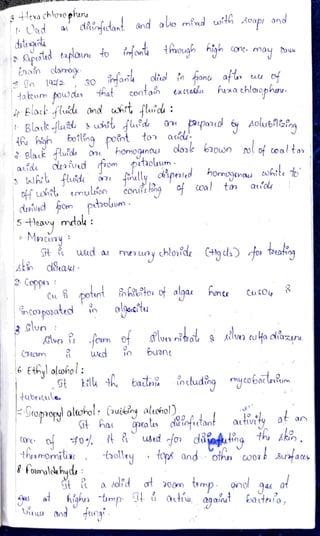 3. Hexa chlorophene
1. Used as disinfectant and also mixed with soaps and
detergents
2. Repeated exposure to infants through high conc. may cause
brain damage
3. In 1972, 30 infants died in france after use of
talcum powder that contain excessive hexachlorophene.
4. Black fluids and white fluids :
1. Black fluids & white fluids are prepared by solubilising
the high boiling point tar acids.
2. Black fluids are homogenous dark brown sol of coal tar
acids derived from petroleum.
3. White fluids are finely dispersed homogenous white to
off white emulsion consisting of coal tar acids
derived from petroleum.
5. Heavy metals :
• Mercury :
It is used as mercury chloride (Hgcl2) for treating
skin diseases.
2. Copper :
Cu is potent inhibitor of algae hence CuSO4 is
incorporated in algacides
3. Silver :
Silver is form of silver nitrate & silver sulfa diazine
cream is used in burns
6. Ethyl alcohol :
It kills the bacteria including mycobacterium
tuberculosis
7. Isopropyl alcohol : (rubbing alcohol)
It has greater disinfectant activity at an
conc. of 70%. It is used for disinfecting the skin,
thermometers, trolley tops and other work surfaces
8. Formaldehyde :
It is a solid at room temp. and gas at
gas at higher temp. It is active against bacteria,
virus and fungi.